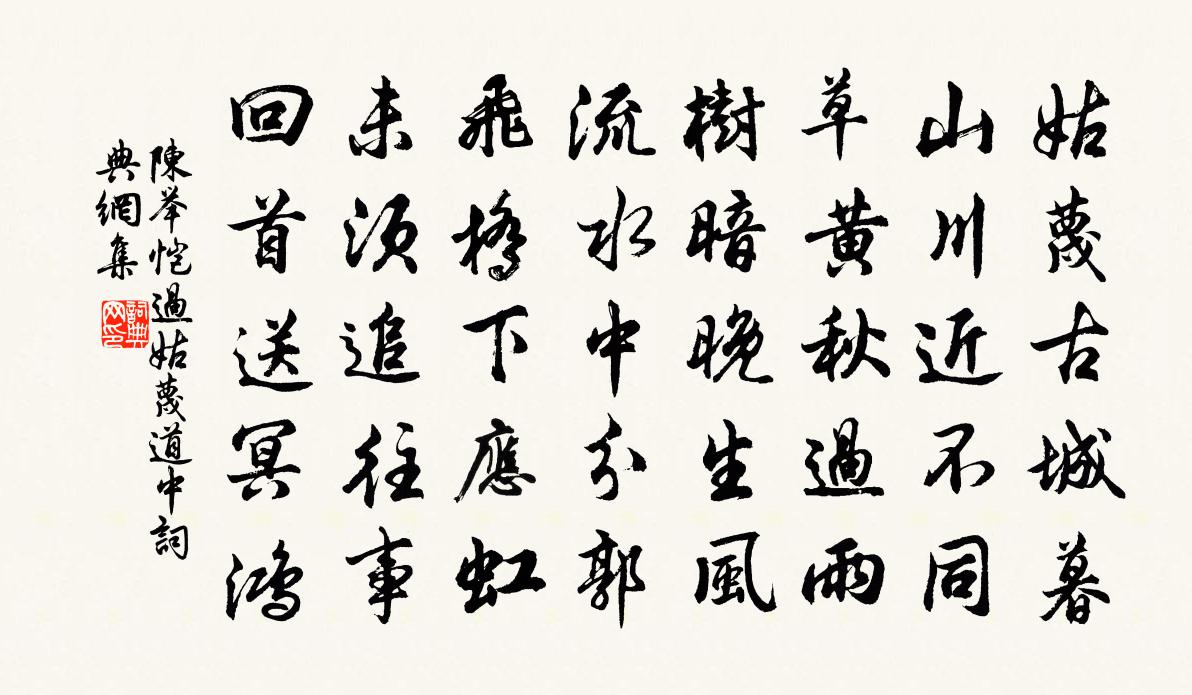 姑蔑古城暮
山川近不同
草黄秋過雨
樹暗晚生風
流水中分郭
飛橋下應虹
未須追往事
回首送冥鴻
陳举愷過姑蔑道中詞
典網集
詞典
网印